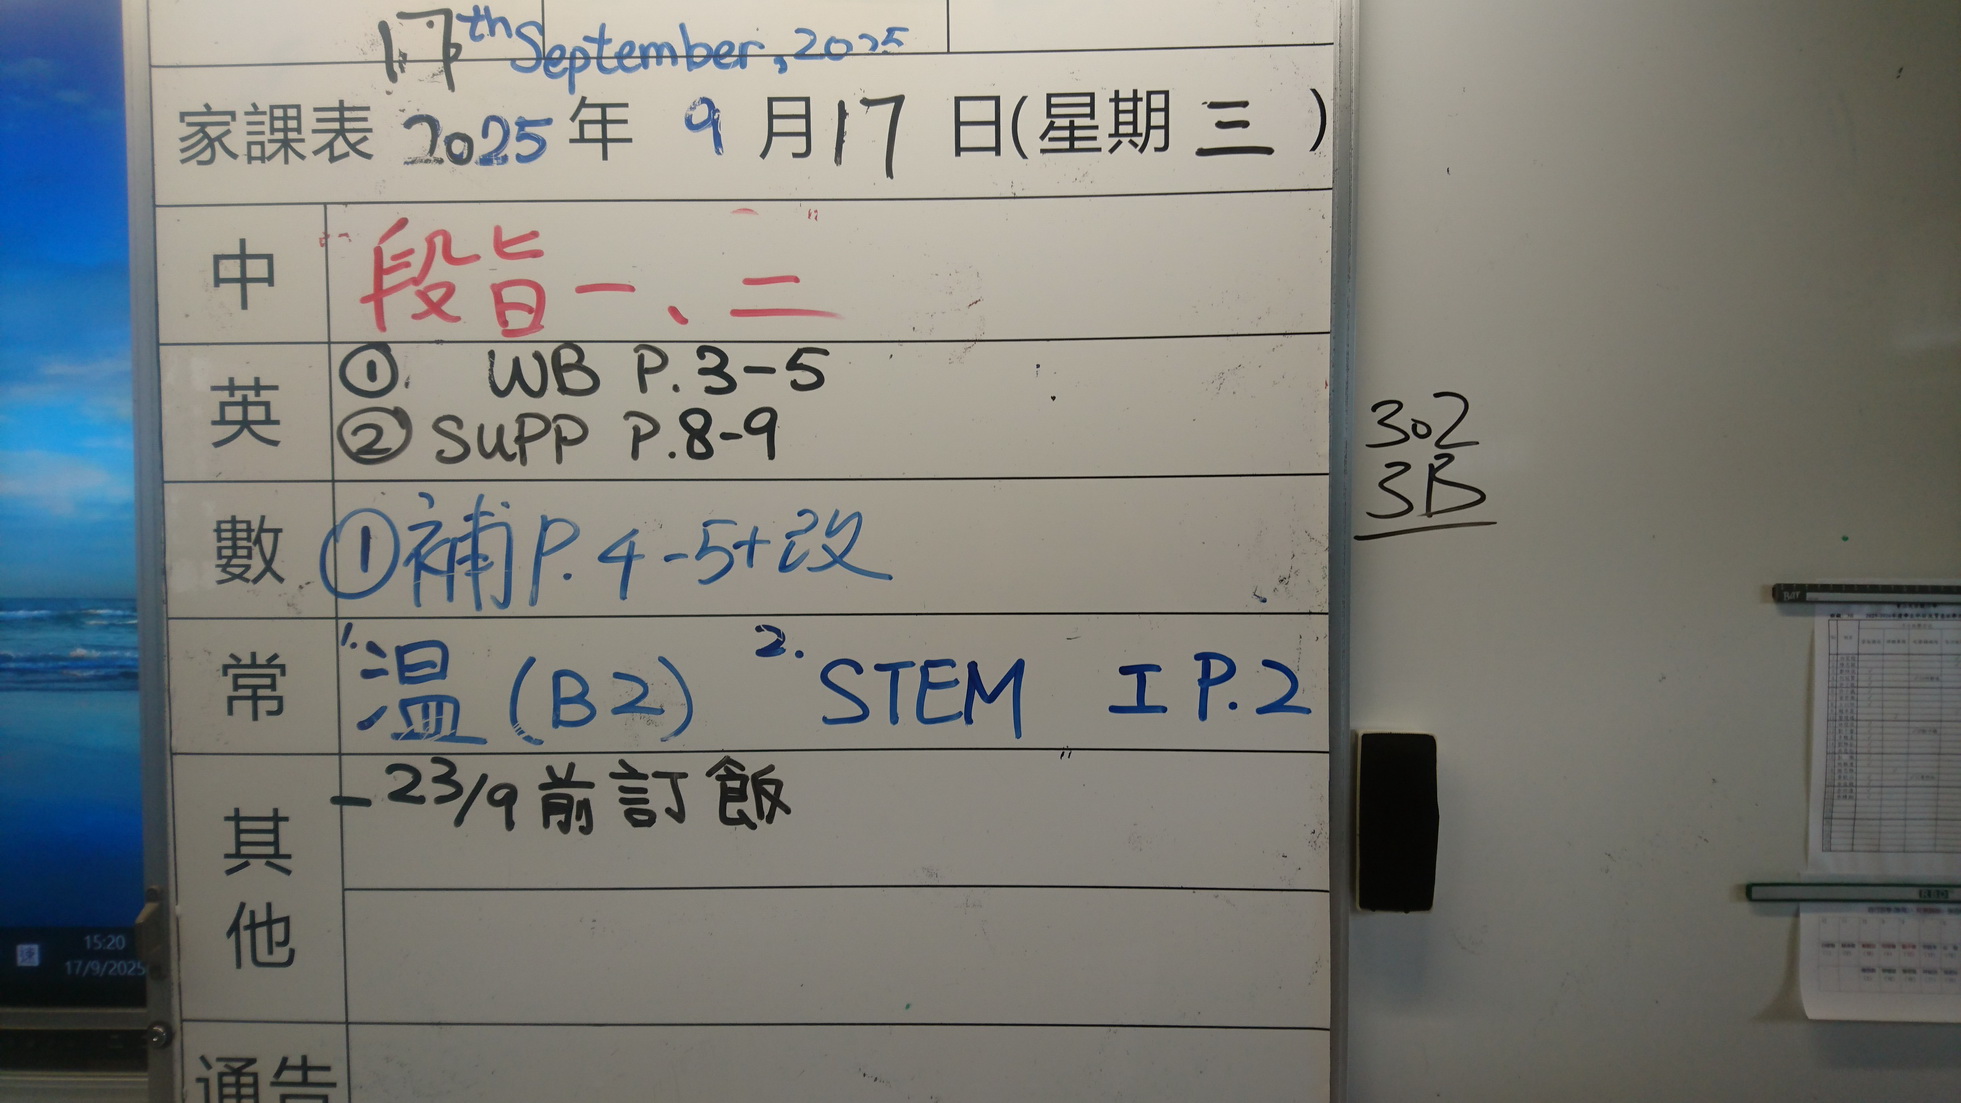 17th September, 2025
家課表 2025 年 9 月 17 日(星期 三 )
中 段旨一、二
英 ① WB P.3-5
② SUPP P.8-9
數 ①補 P.4-5+改
常 1. 温 (B2) 2. STEM I P.2
其他 - 23/9 前訂飯
通告
302
3B
15:20
17/9/2025